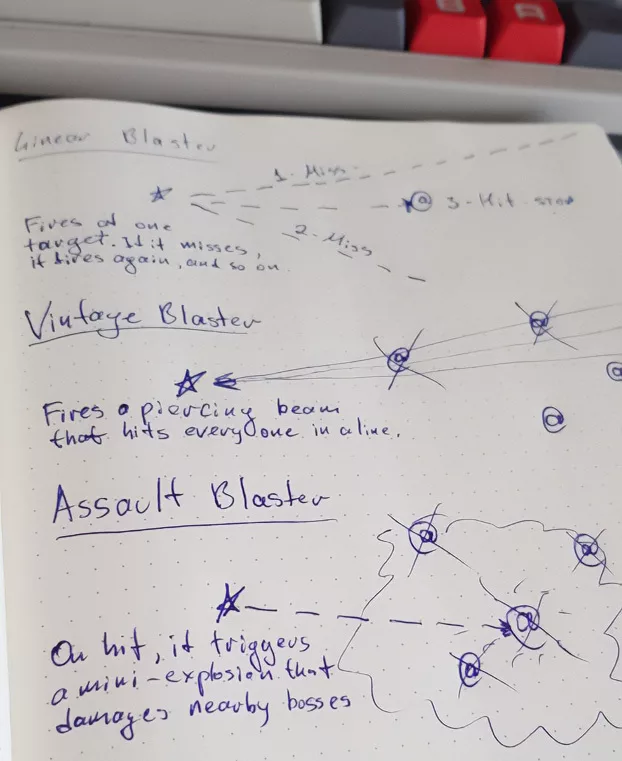 Linear Blaster
1-Miss
@ 3-Hit-stop
2-Miss
Fires at one
target. If it misses,
it fires again, and so on.
Vintage Blaster
@
@
@
@
Fires a piercing beam
that hits everyone in a line.
Assault Blaster
@
@
@
@
On hit, it triggers
a mini-explosion that
damages nearby bosses